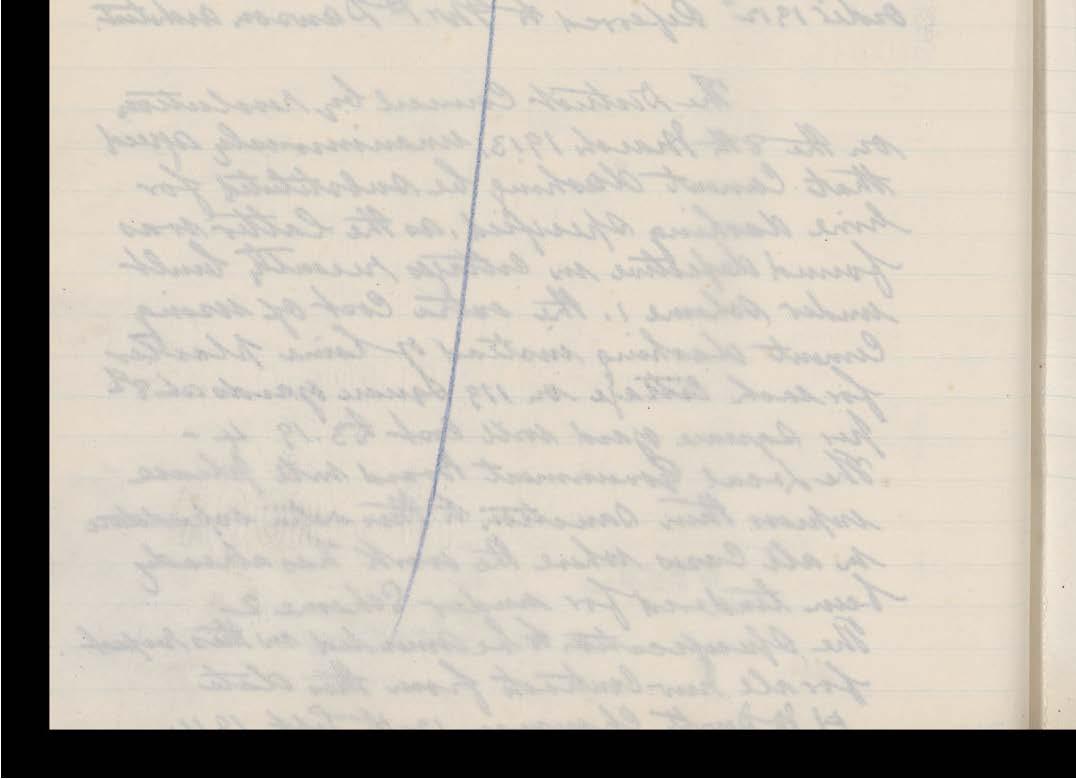 Order 1912 Referred to Mr Dawson Architect
The District Council by resolution,
on the 8th March 1913, unanimously agreed
that Cement dashing be substituted for
lime dashing specified, as the latter was
found defective in cottages recently built
under Scheme 1. the extra cost of using
Cement dashing instead of lime plaster
for each Cottage in 119 square yards at 8d
per square yard will cost £3. 19. 4 -
The Local Government Board will please
in all Cases where the work has already
been tendered for under Scheme 2
The Specification to be amended in this respect
for all new Contract from this date